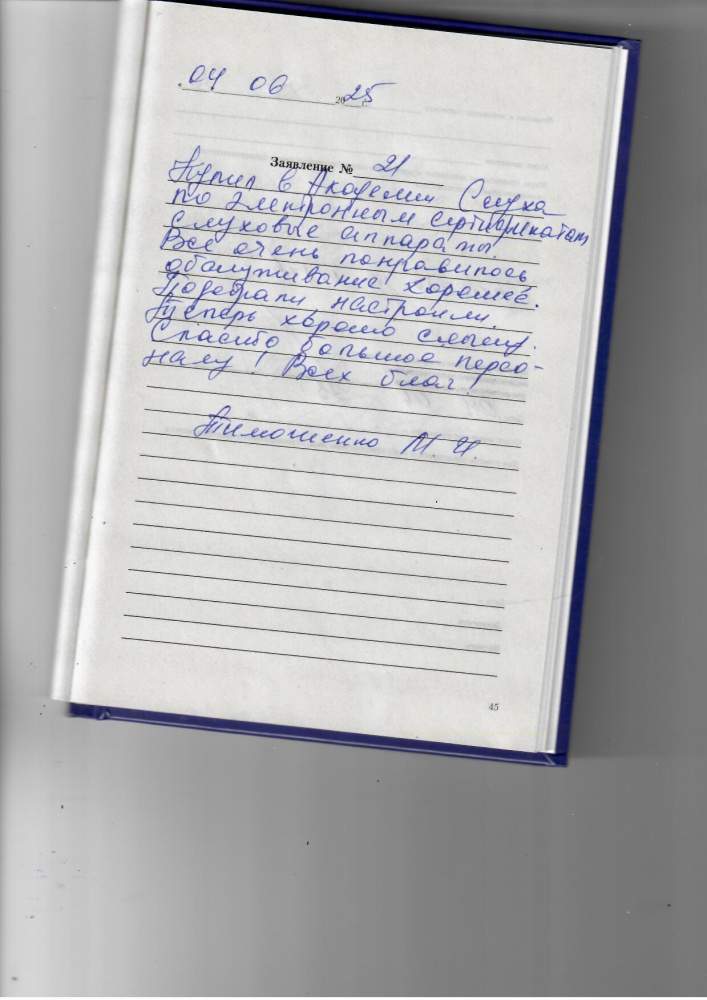 04 06 2025 г.
Заявление № 21
Купил в Академии Слуха
по электронным сертификатам
слуховые аппараты.
Всё очень понравилось
обслуживание хорошее.
Подобрали настроили.
Теперь хорошо слышу.
Спасибо большое персо-
налу! Всех благ!
Тимошенко М. И.
45